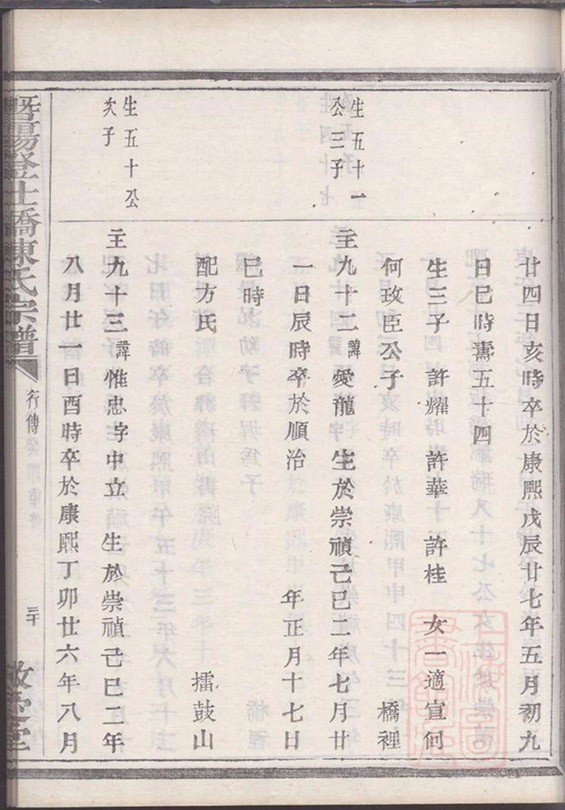 廿四日亥時卒於康熙戊辰廿七年五月初九
日巳時壽五十四
生三子 許耀 許華 許桂 女一適宣何
何玫臣公子 橋裡
生五十一
公三子
主九十二諱愛龍 生於崇禎己巳二年七月廿
一日辰時卒於順治 年正月十七日
巳時
配方氏 擂鼓山
生五十公
次子
主九十三諱惟忠字中立 生於崇禎己巳二年
八月廿一日酉時卒於康熙丁卯廿六年八月
暨陽登仕橋陳氏宗譜 行傳